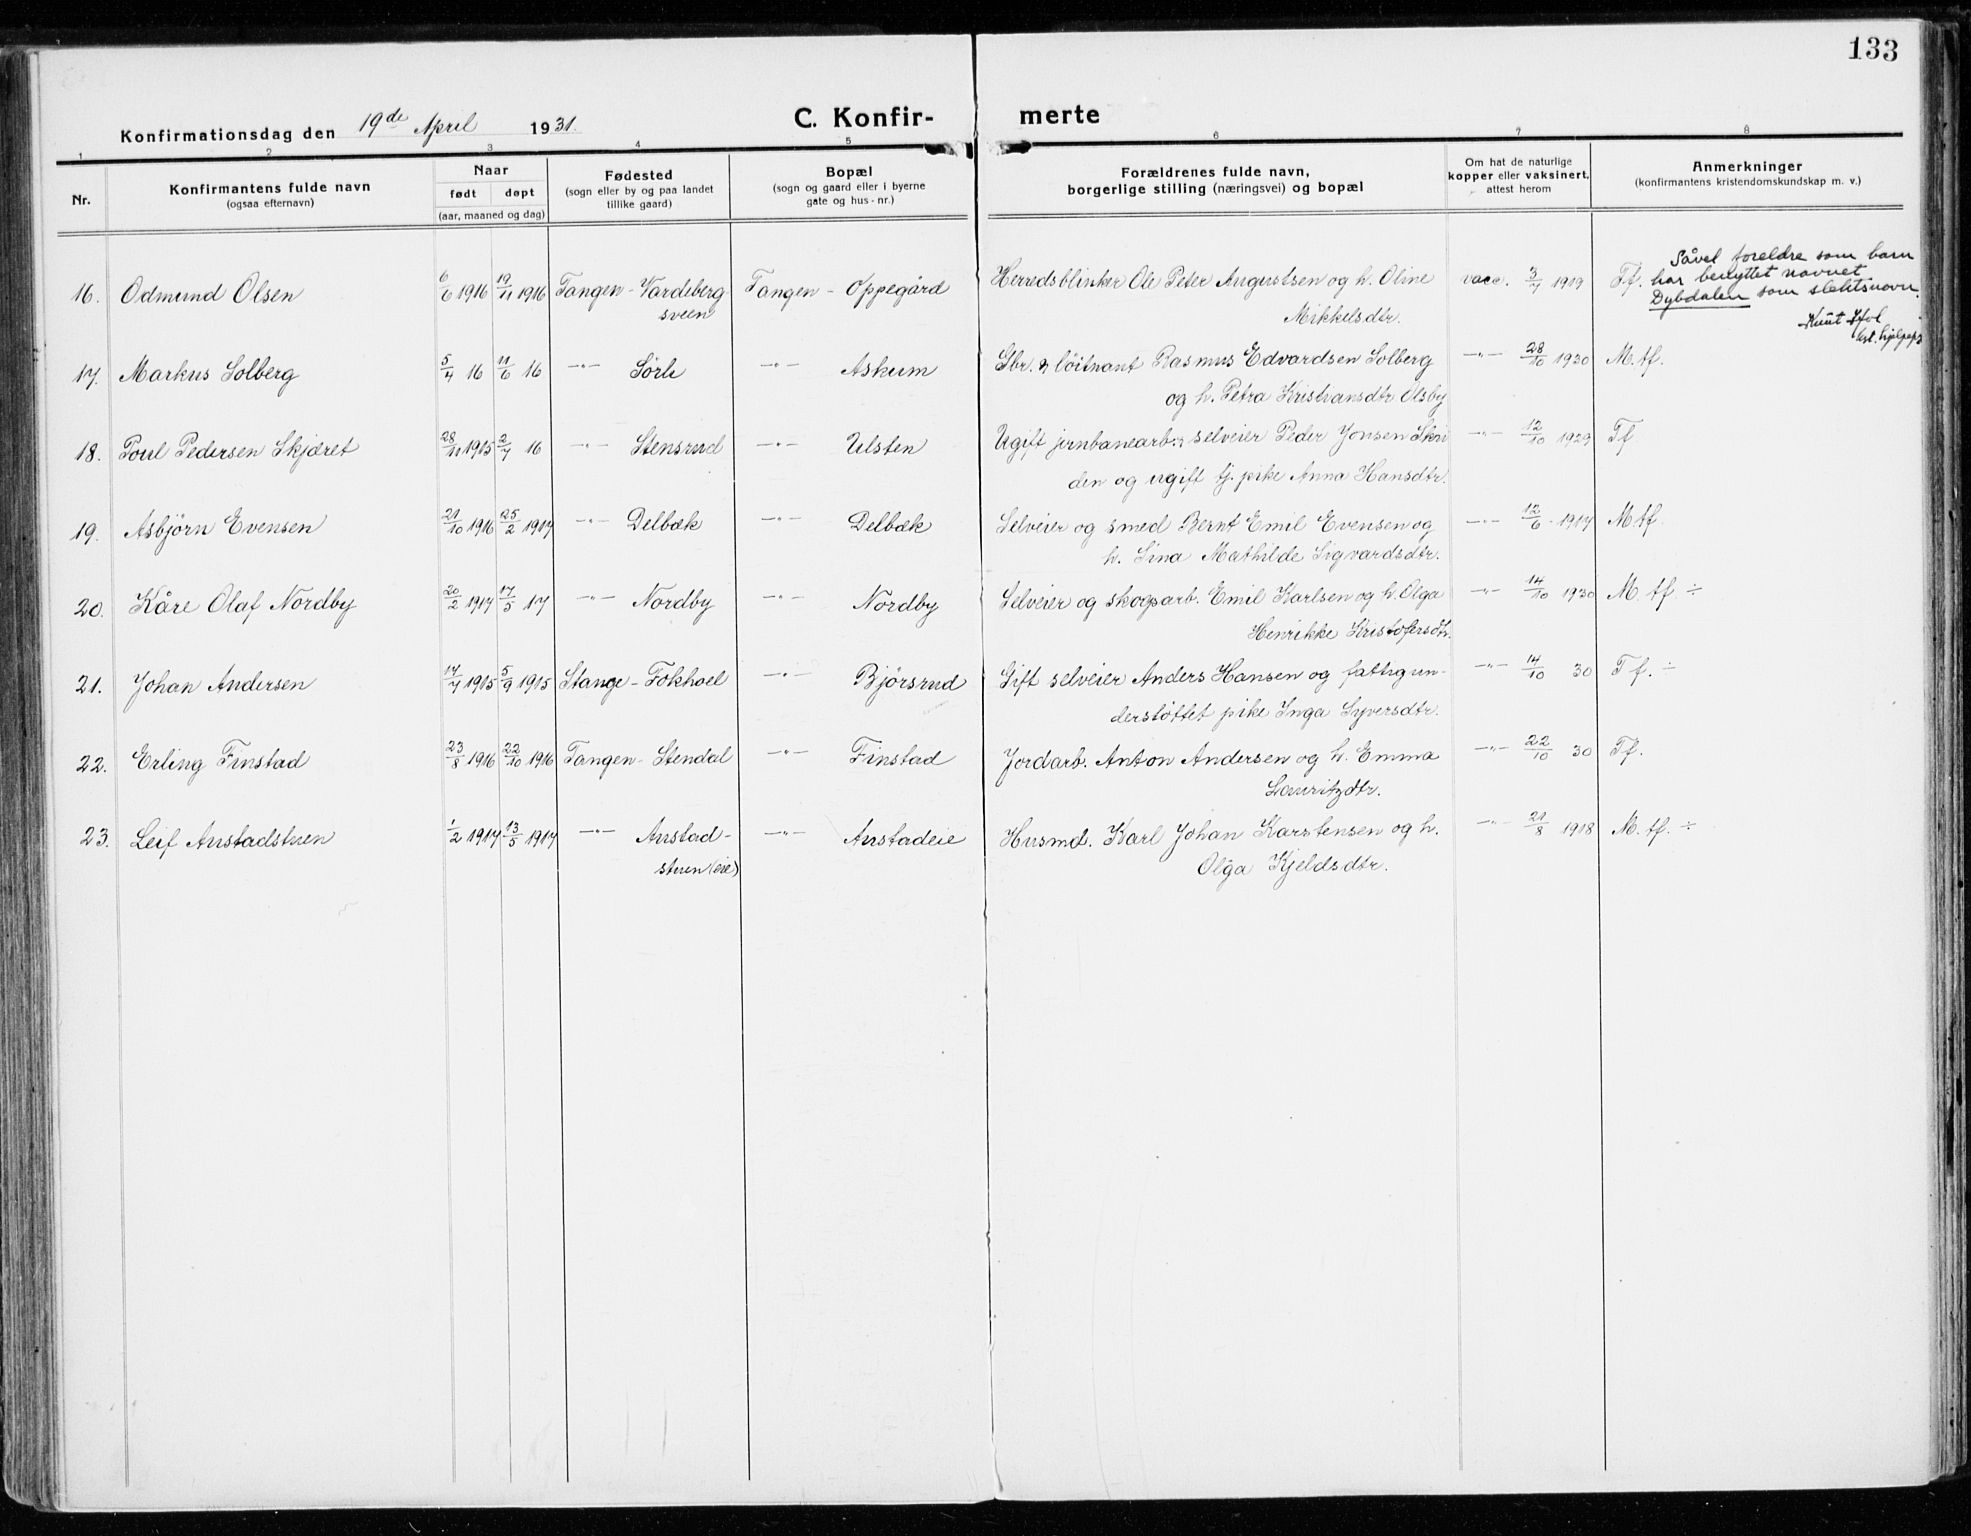 133
Konfirmationsdag den 19de April 1931.
C. Konfir- merte
1 2 3 4 5 6 7 8
Nr.
Konfirmantens fulde navn
(ogsaa efternavn)
Naar
født døpt
(aar, maaned og dag)
Fødested
(sogn eller by og paa landet
tillike gaard)
Bopæl
(sogn og gaard eller i byerne
gate og hus-nr.)
Forældrenes fulde navn,
borgerlige stilling (næringsvei) og bopæl
Om hat de naturlige
kopper eller vaksinert.
attest herom
Anmerkninger
(konfirmantens kristendomskundskap m. v.)
Såvel foreldre som barn
har benyttet navnet
Dybdalen som slektsnavn.
Knut
16. Odmund Olsen 6/6 1916 19/11 1916 Tangen - Vardeberg Tangen - Oppegård Herredsblinker Ole Peter Augustsen og h. Oline vacc. 3/7 1919 Tf.
sveen Mikkelsdtr.
17. Markus Solberg 5/4 16 11/6 16 -"- Sörli -"- Askum Gbr. & löitnant Rasmus Edvardsen Solberg -"- 28/10 1930 M.tf.
og h. Petra Kristiansdtr Olsby
18. Poul Pedersen Skjæret 28/11 1915 2/7 16 -"- Stensrud -"- Ulsten Ugift jernbanearb. & selveier Peder Jonsen Skri -"- 12/10 1929 Tf
den og ugift tj. pike Anna Hansdtr.
19. Asbjörn Evensen 21/10 1916 25/2 1917 -"- Delbæk -"- Delbæk Selveier og smed Bernt Emil Evensen og -"- 12/6 1917 M tf.
h. Lina Mathilde Sigvardsdtr.
20. Kåre Olaf Nordby 20/2 1917 17/5 17 -"- Nordby -"- Nordby Selveier og skogarb. Emil Karlsen og h. Olga -"- 14/10 1930 M. tf. ÷
Henrikke Kristofersdtr.
21. Johan Andersen 17/7 1915 5/9 1915 Stange - Fokhoel -"- Bjørsrud Gift selveier Anders Hansen og fattigun- -"- 14/10 30 T f. ÷
derstöttet pike Inga Syversdtr.
22. Erling Finstad 23/8 1916 22/10 1916 Tangen - Stendal -"- Finstad Jordarb. Anton Andersen og h. Emma -"- 22/10 30 Tf.
Lauritzdtr.
23. Leif Anstadstuen 1/2 1917 13/5 1917 -"- Anstad- -"- Anstadeie Husmd. Karl Johan Karstensen og h. -"- 21/8 1918 M. tf. ÷
stuen (eie) Olga Kjeldsdtr.